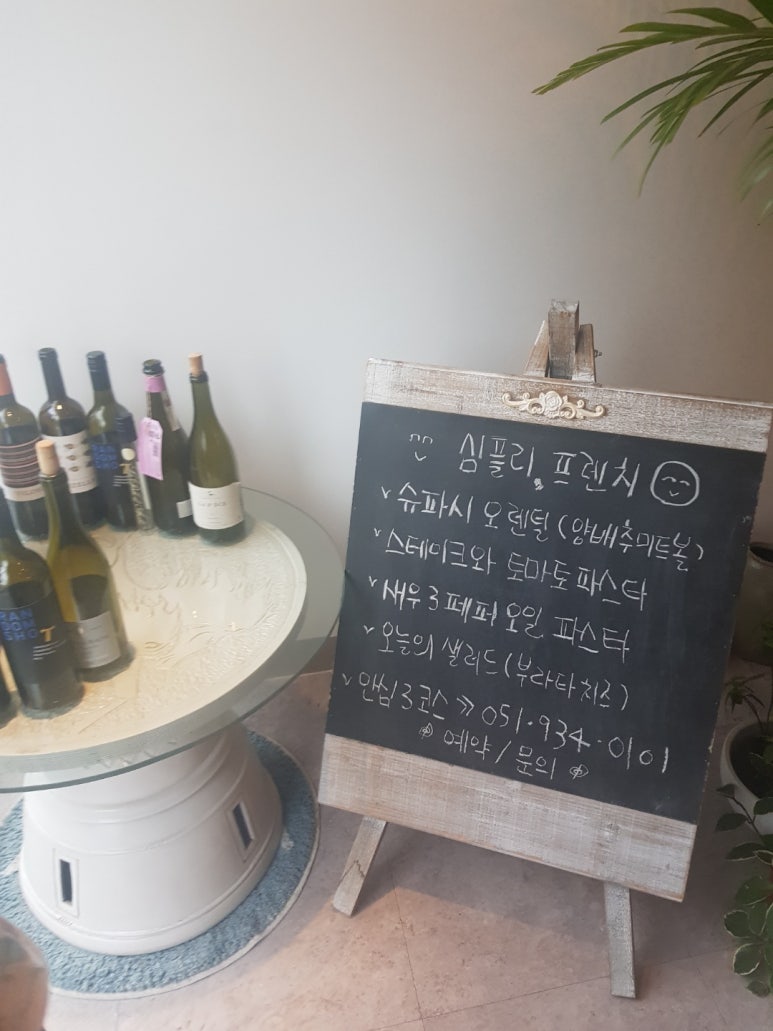 심플리, 프렌치
v 슈파시 오렌틸 (양배추미트볼)
v 스테이크와 토마토파스타
v 새우 3페퍼 오일 파스타
v 오늘의 샐러드 (부라타치즈)
v 안심 3코스 » 051·934·0101
예약 / 문의
RAN
SOM
SHOT